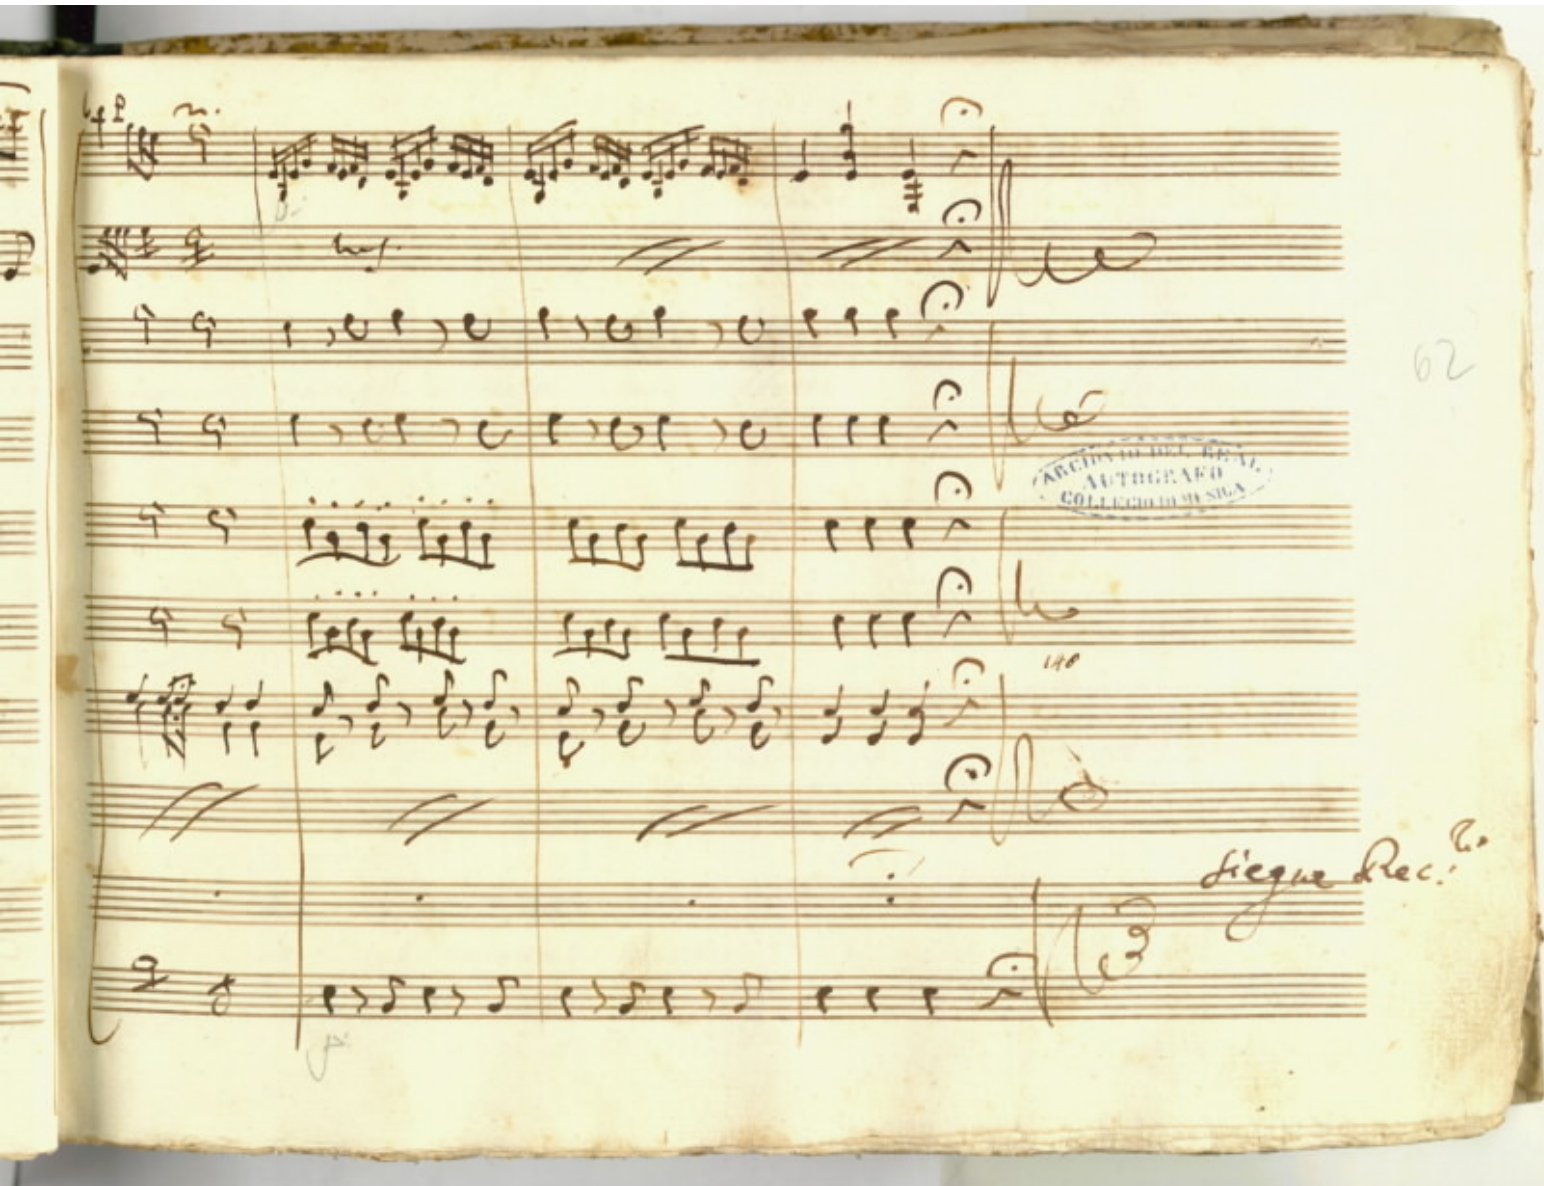 62
ARCHIVIO DEL REAL
AUTOGRAFO
COLLEGIO DI MUSICA
148
Siegue Rec.vo